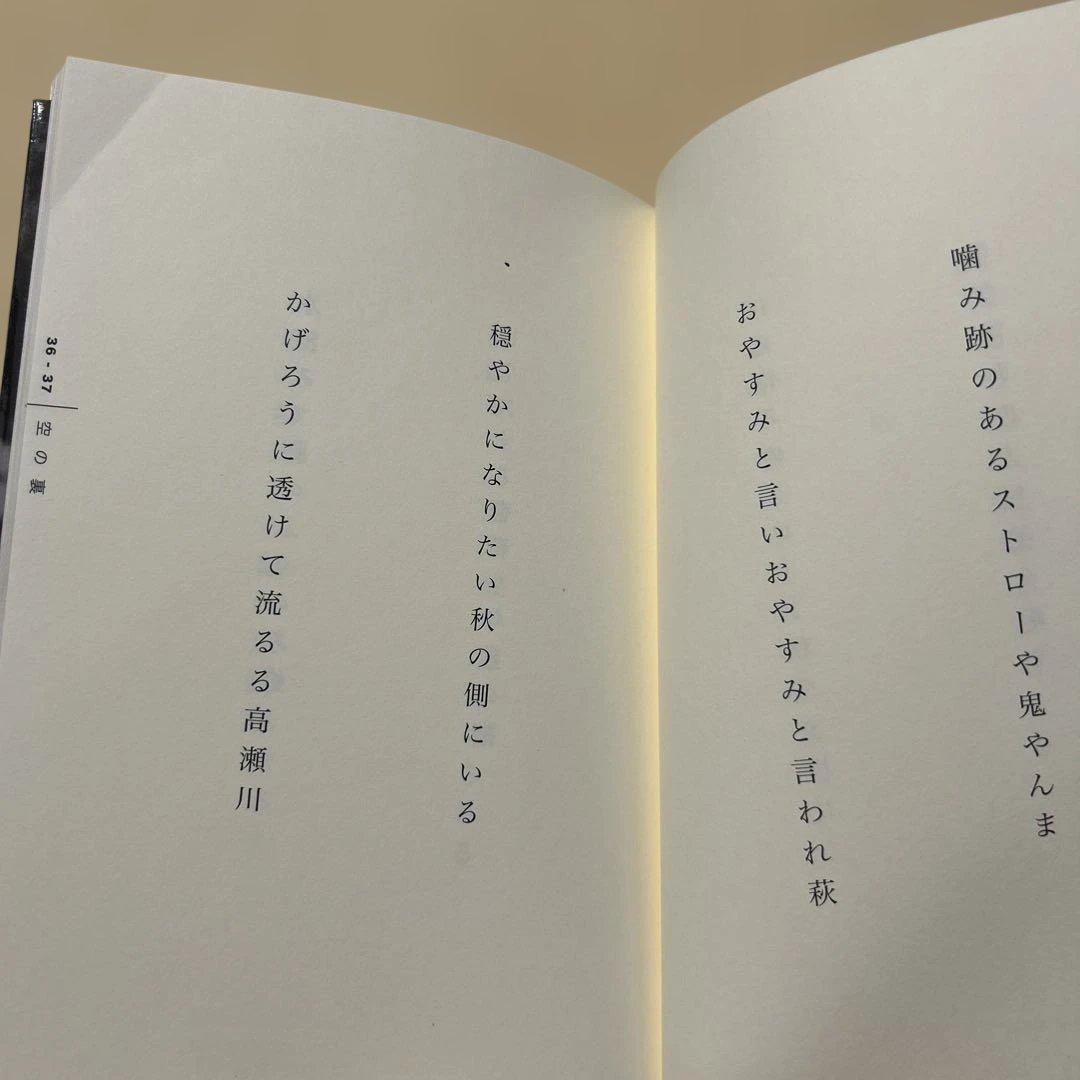 噛み跡のあるストローや鬼やんま
おやすみと言いおやすみと言われ萩
穏やかになりたい秋の側にいる
かげろうに透けて流るる高瀬川
36 - 37
空の裏